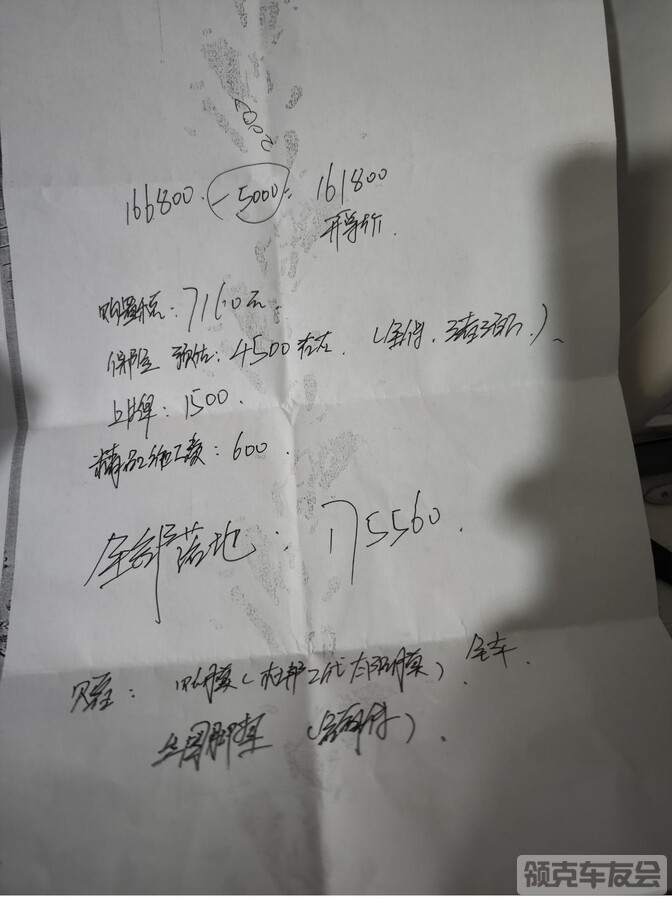 2000
166800. -5000 = 161800
开票价.
购置税: 7160元.
保险 预估: 4500左右. (全保. 三者三百万.)
上牌: 1500.
精品施工费: 600.
全部落地: 175560.
贴膜( 二代太阳膜). 全车.
丝圈脚垫
领克车友会